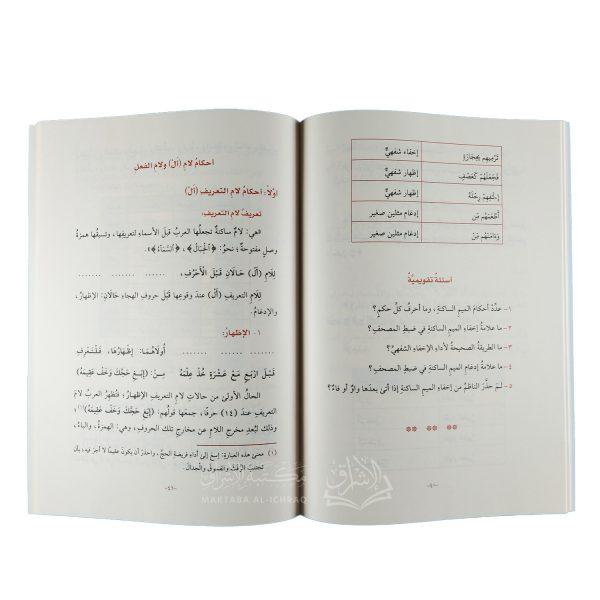 تَرْمِيهِم بِحِجَارَةٍ إخفاء شفهيٌّ
فَجَعَلَهُمْ كَعَصْفٍ إظهار شفهيٌّ
إِۦلَٰفِهِمْ رِحْلَةَ إظهار شفهيٌّ
أَطْعَمَهُم مِّن إدغام مثلين صغير
وَءَامَنَهُم مِّنْ إدغام مثلين صغير
أسئلةٌ تقويميَّةٌ
١- عدِّدْ أحكامَ الميمِ الساكنةِ، وما أحرفُ كلِّ حكمٍ؟
٢- ما علامةُ إخفاءِ الميمِ الساكنةِ في ضبطِ المصحفِ؟
٣- ما الطريقةُ الصحيحةُ لأداءِ الإخفاءِ الشفهيِّ؟
٤- ما علامةُ إدغامِ الميمِ الساكنةِ في ضبطِ المصحفِ؟
٥- لمَ حذّرَ الناظمُ من إخفاءِ الميمِ الساكنةِ إذا أتى بعدَها واوٌ أو فاءٌ؟
*** *** ***
-٤٠-
أحكامُ لامِ (أل) ولامِ الفعلِ
أوَّلاً: أحكامُ لامِ التعريفِ (أل)
تعريفُ لامِ التعريفِ:
هي: لامٌ ساكنةٌ تجعلُها العربُ قبلَ الأسماءِ لتعريفِها، وتسبقُها همزةُ
وصلٍ مفتوحةٌ؛ نحوُ: ﴿ٱلْجِبَالُ﴾، ﴿ٱلسَّمَآءِ﴾.
لِلَامِ (أَلْ) حَالَانِ قَبْلَ الْأَحْرُفِ، ....... .......
للامِ التعريفِ (أل) عندَ وقوعِها قبلَ حروفِ الهجاءِ حالانِ: الإظهارُ،
والإدغامُ.
١- الإظهارُ:
....... ....... أُولَاهُمَا: إِظْهَارُهَا، فَلْتَعْرِفِ
قَبْلَ ارْبَعٍ مَعَ عَشْرَةٍ خُذْ عِلْمَهُ مِنِ: (إِبْغِ حَجَّكَ وَخَفْ عَقِيمَهُ)
الحالُ الأولى من حالاتِ لامِ التعريفِ الإظهارُ؛ فتُظهِرُ العربُ لامَ
التعريفِ عندَ (١٤) حرفًا، جمعَها قولُهم: (إِبْغِ حَجَّكَ وَخَفْ عَقِيمَهُ)(١)
وذلك لبُعدِ مخرجِ اللامِ عن مخارجِ تلك الحروفِ، وهي: الهمزةُ، والباءُ،
(١) معنى هذه العبارةِ: اسعَ إلى أداءِ فريضةِ الحجِّ، واحذرْ أن يكونَ عقيمًا لا أجرَ فيه، بأن
تجتنبَ الرَّفَثَ والفسوقَ والجدالَ.
-٤١-
مكتبة الإشراق
MAKTABA AL-ICHRAQ
الإشراق